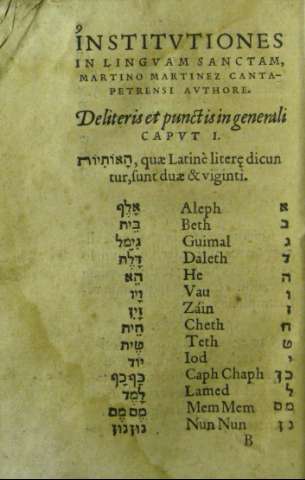 9
INSTITVTIONES
IN LINGVAM SANCTAM,
MARTINO MARTINEZ CANTA-
PETRENSI AVTHORE.
De literis et punctis in generali
CAPVT I.
הָאוֹתִיּוֹת, quæ Latinè literę dicun
tur, sunt duæ & viginti.
אָלֶף Aleph א
בֵּית Beth ב
גִּימֶל Guimal ג
דָּלֶת Daleth ד
הֵא He ה
וָיו Vau ו
זַיִן Záin ז
חֵית Cheth ח
טֵית Teth ט
יוֹד Iod י
כַּף כָף Caph Chaph כ ך
לָמֶד Lamed ל
מֵם מֵם Mem Mem מ ם
נוּן נוּן Nun Nun נ ן
B